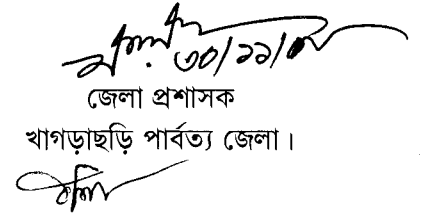 ৩০/১১/
জেলা প্রশাসক
খাগড়াছড়ি পার্বত্য জেলা।